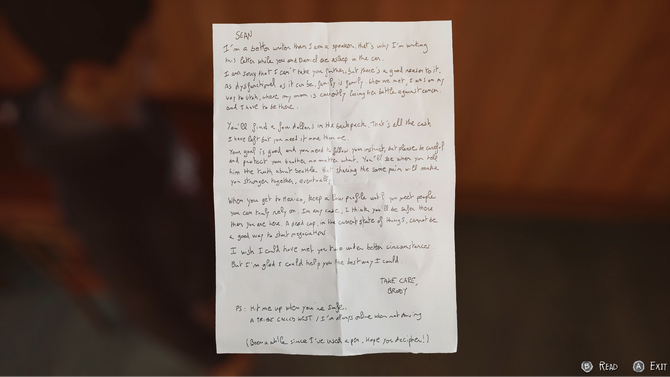 SEAN
I'm a better writer than I am a speaker, that's why I'm writing
this letter while you and Daniel are asleep in the car.
I am sorry that I can't take you further, but there's a good reason to it.
As dysfunctional as it can be, family is family. When we met, I was on my
way to Utah, where my mom is currently losing her battle against cancer
and I have to be there.
You'll find a few dollars in the backpack. That's all the cash
I have left but you need it more than me.
Your goal is good and you need to follow your instinct, but please be careful
and protect your brother no matter what. You'll see when you told
him the truth about Seattle. But sharing the same pain will make
you stronger together, eventually.
When you get to Mexico, keep a low profile until you meet people
you can truly rely on. In any case, I think you'll be safer there
than you are here. A dead cop, in the current state of things, cannot be
a good way to start negotiations.
I wish I could have met you two under better circumstances
But I'm glad I could help you the best way I could
TAKE CARE,
BRODY
PS: Hit me up when you are safe.
/ I'm always online when not driving
(Been a while since I've used a pen. Hope you decipher!)
B READ A EXIT